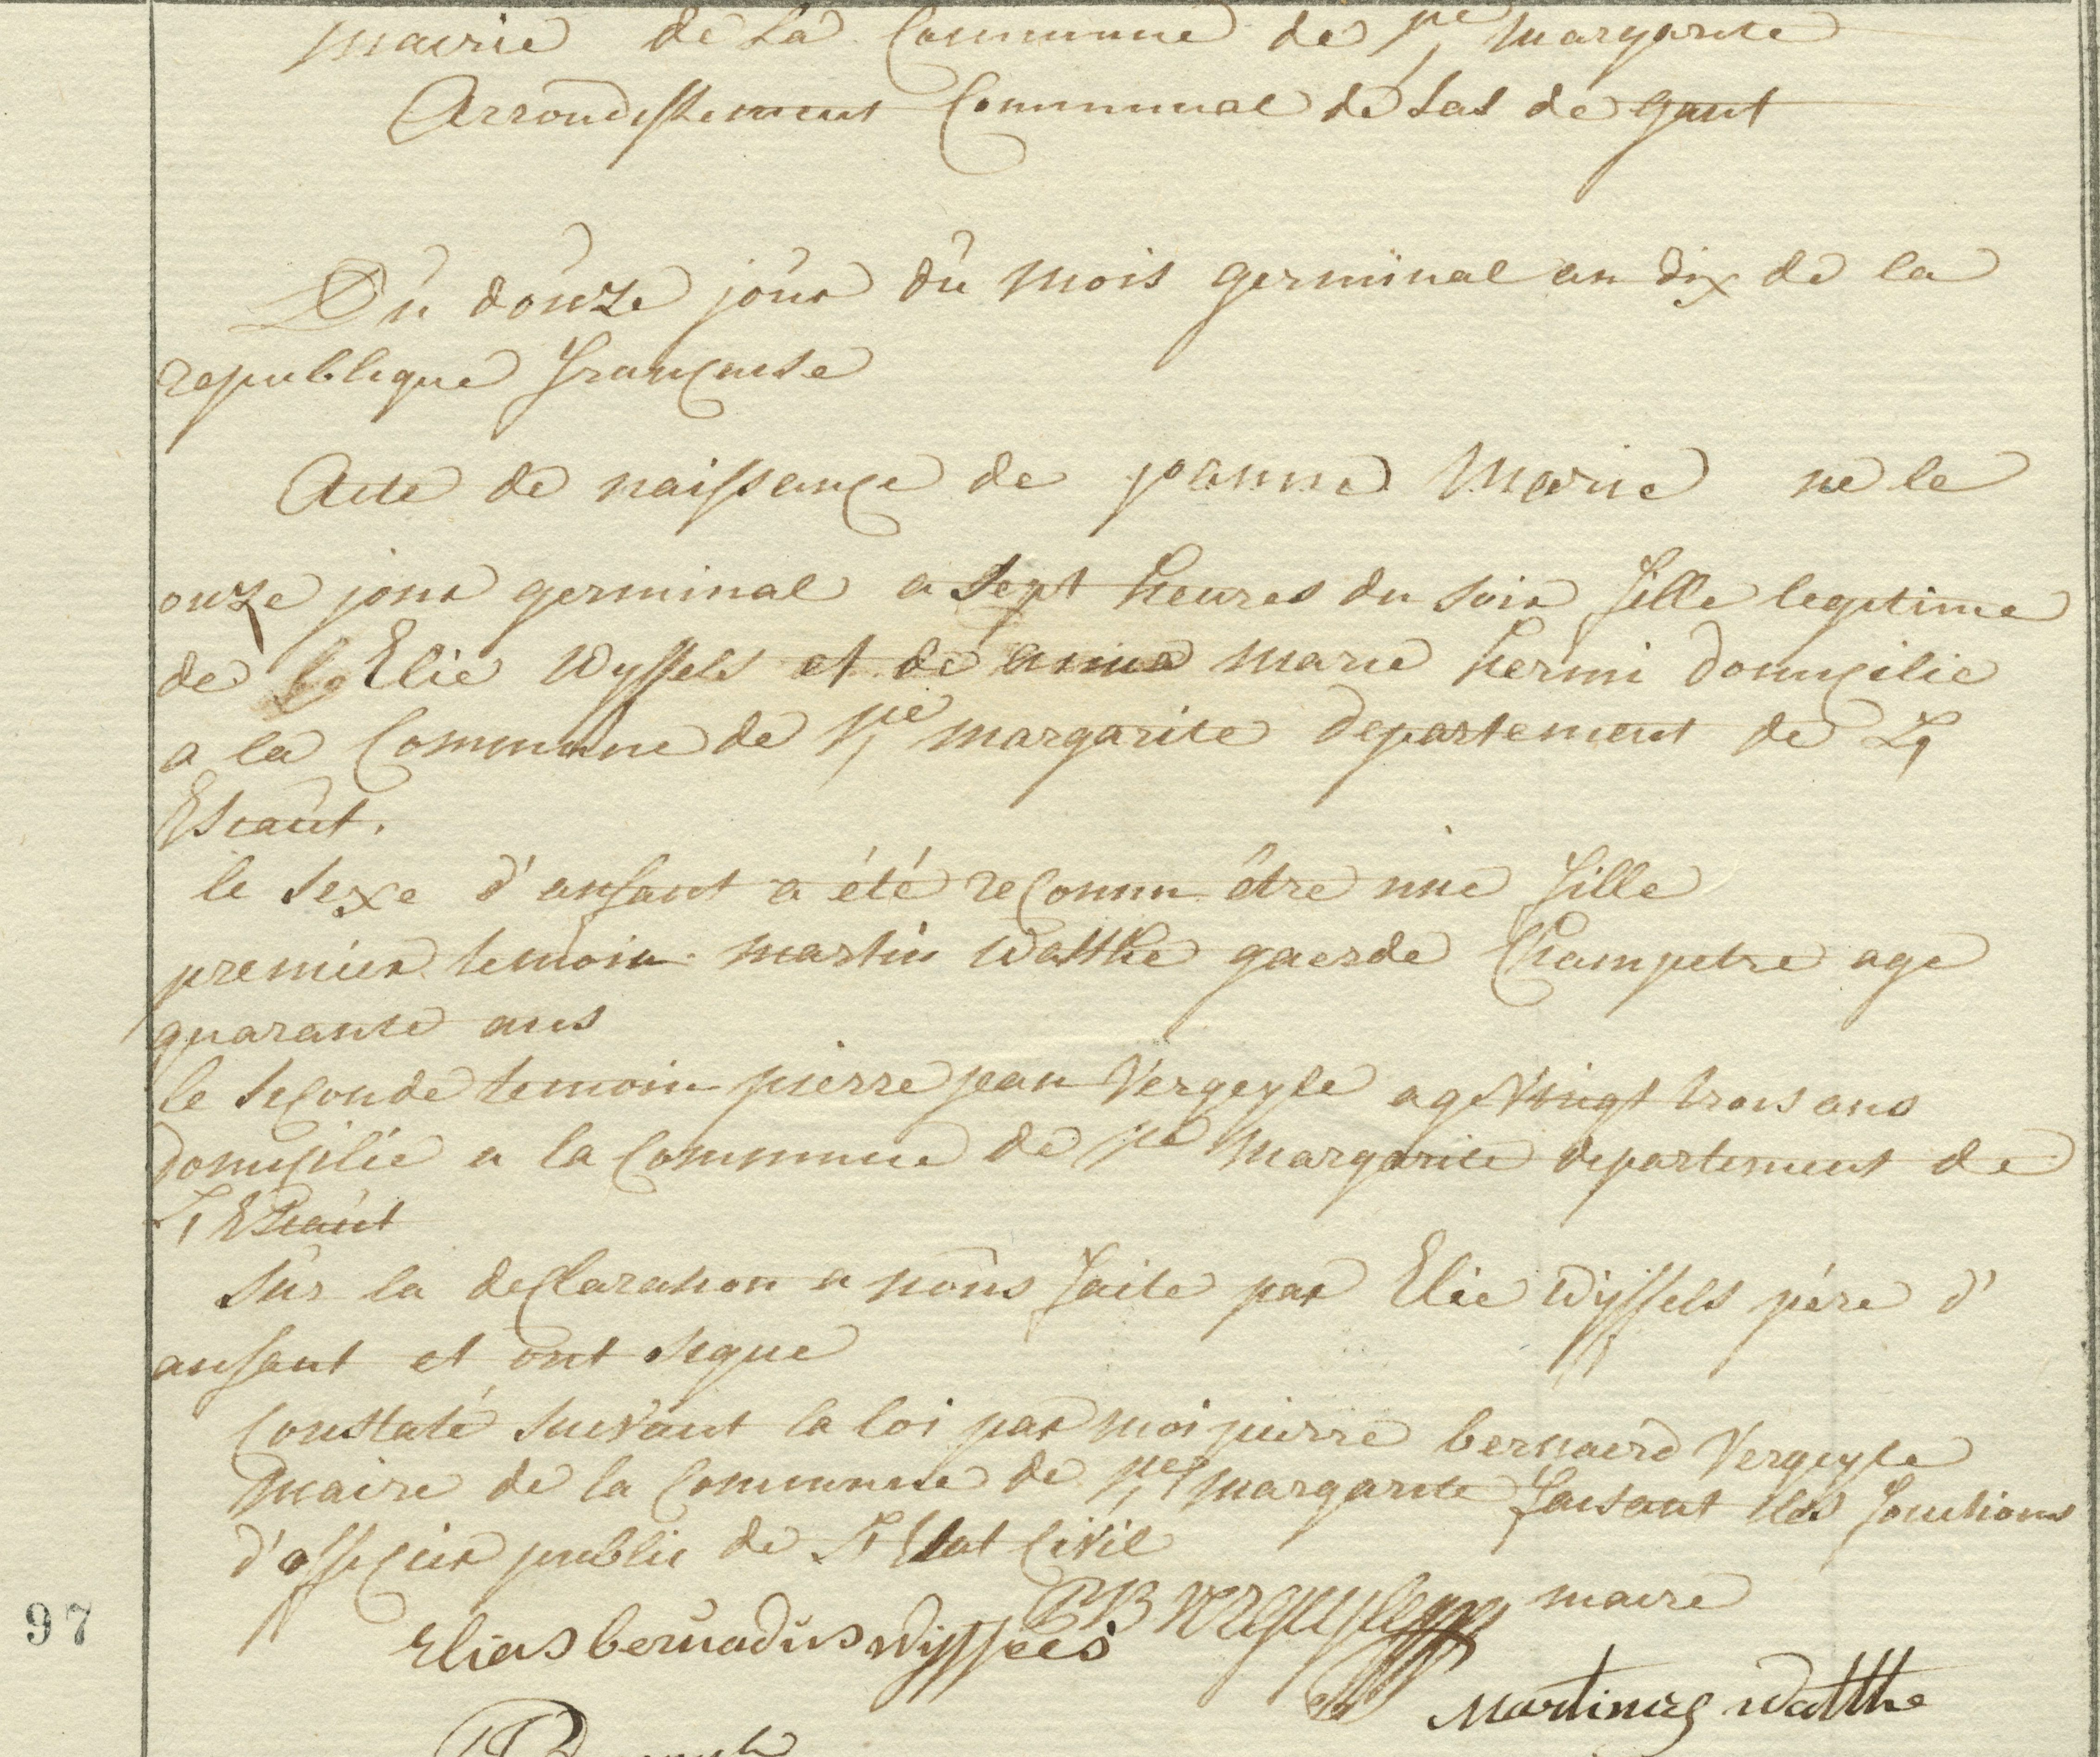 mairie de La Commune de Ste Margarite
Arrondissement Communal de Sas de gant
Du douze jour du mois germinal an dix de la
republique francaise
Acte de naissance de joanne Marie né le
onze jour germinal a sept heures du soir fille legitime
de Elie Wyffels et de anna marie hermi domicilie
a la Commune de Ste margarite departement de L'
Escaut.
le sexe d'anfant a été reconnu être une fille
premier temoin martin Watthe gaerde Champetre age
quarante ans
le seconde temoin pierre jean Vergeyle age Vingt trois ans
domicilié a la Commune de Ste Margarite departement de
L'Escaut
Sur la declaration a nous faite par Elie Wyffels père d'
anfant et ont signe
Constaté suivant la loi par moi pierre bernaerd Vergeyle
maire de la Commune de Ste margarite faisant les fonctions
d'officier public de L'Etat Civil
PB Vergeyle maire
Elias bernadus Wyffels
97
Martinus Watthe